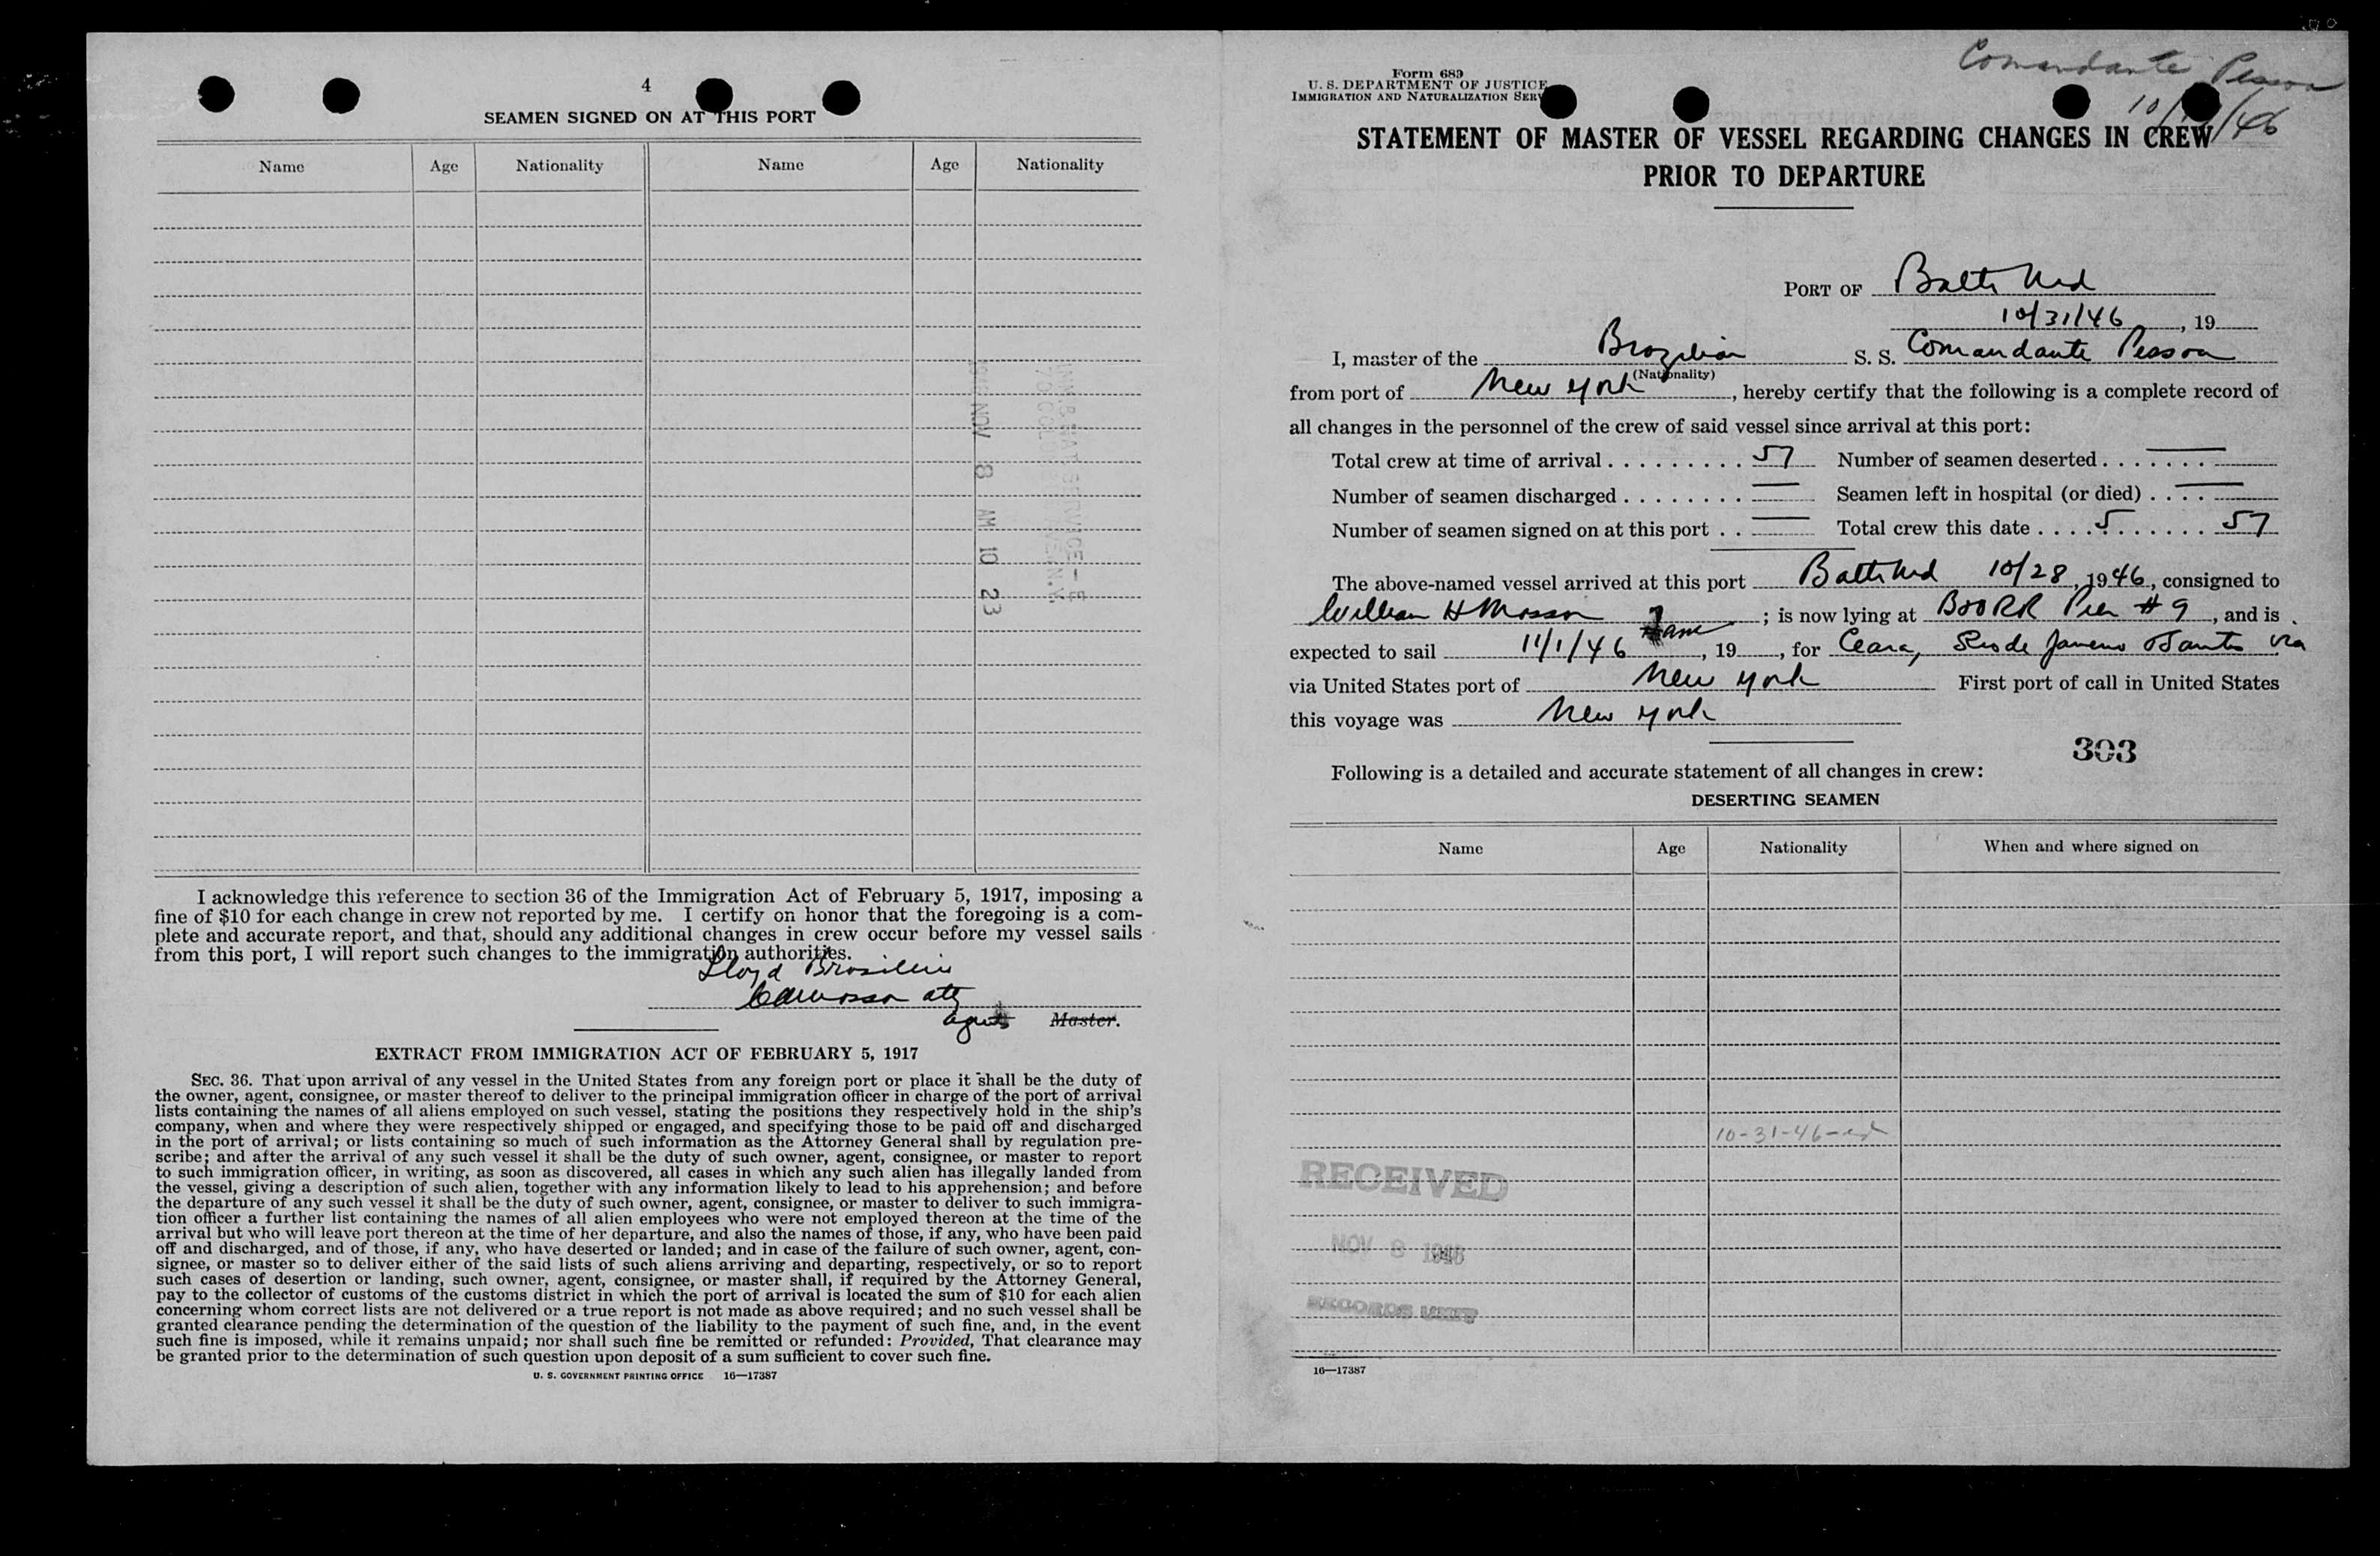 4
SEAMEN SIGNED ON AT THIS PORT
Name Age Nationality Name Age Nationality
NOV 8 AM 10 23
I acknowledge this reference to section 36 of the Immigration Act of February 5, 1917, imposing a
fine of $10 for each change in crew not reported by me. I certify on honor that the foregoing is a com-
plete and accurate report, and that, should any additional changes in crew occur before my vessel sails
from this port, I will report such changes to the immigration authorities.
Lloyd Brasileiro
atty
agents Master.
EXTRACT FROM IMMIGRATION ACT OF FEBRUARY 5, 1917
SEC. 36. That upon arrival of any vessel in the United States from any foreign port or place it shall be the duty of
the owner, agent, consignee, or master thereof to deliver to the principal immigration officer in charge of the port of arrival
lists containing the names of all aliens employed on such vessel, stating the positions they respectively hold in the ship's
company, when and where they were respectively shipped or engaged, and specifying those to be paid off and discharged
in the port of arrival; or lists containing so much of such information as the Attorney General shall by regulation pre-
scribe; and after the arrival of any such vessel it shall be the duty of such owner, agent, consignee, or master to report
to such immigration officer, in writing, as soon as discovered, all cases in which any such alien has illegally landed from
the vessel, giving a description of such alien, together with any information likely to lead to his apprehension; and before
the departure of any such vessel it shall be the duty of such owner, agent, consignee, or master to deliver to such immigra-
tion officer a further list containing the names of all alien employees who were not employed thereon at the time of the
arrival but who will leave port thereon at the time of her departure, and also the names of those, if any, who have been paid
off and discharged, and of those, if any, who have deserted or landed; and in case of the failure of such owner, agent, con-
signee, or master so to deliver either of the said lists of such aliens arriving and departing, respectively, or so to report
such cases of desertion or landing, such owner, agent, consignee, or master shall, if required by the Attorney General,
pay to the collector of customs of the customs district in which the port of arrival is located the sum of $10 for each alien
concerning whom correct lists are not delivered or a true report is not made as above required; and no such vessel shall be
granted clearance pending the determination of the question of the liability to the payment of such fine, and, in the event
such fine is imposed, while it remains unpaid; nor shall such fine be remitted or refunded: Provided, That clearance may
be granted prior to the determination of such question upon deposit of a sum sufficient to cover such fine.
U. S. GOVERNMENT PRINTING OFFICE 16—17387
Comandante Pessoa
Form 689
U. S. DEPARTMENT OF JUSTICE
IMMIGRATION AND NATURALIZATION SERV
STATEMENT OF MASTER OF VESSEL REGARDING CHANGES IN CREW
PRIOR TO DEPARTURE
PORT OF Balto Md
10/31/46, 19
I, master of the Brazilian S. S. Comandante Pessoa
(Nationality)
from port of New York, hereby certify that the following is a complete record of
all changes in the personnel of the crew of said vessel since arrival at this port:
Total crew at time of arrival 57 Number of seamen deserted
Number of seamen discharged Seamen left in hospital (or died)
Number of seamen signed on at this port Total crew this date 5 57
The above-named vessel arrived at this port Balto Md 10/28, 1946, consigned to
William H Masson; is now lying at B&O RR Pier # 9, and is
expected to sail 11/1/46 7 am, 19, for Ceara, Rio de Janeiro & Santos via
via United States port of New York First port of call in United States
this voyage was New York
303
Following is a detailed and accurate statement of all changes in crew:
DESERTING SEAMEN
Name Age Nationality When and where signed on
10-31-46
RECEIVED
NOV 8 1946
RECORDS UNIT
16—17387